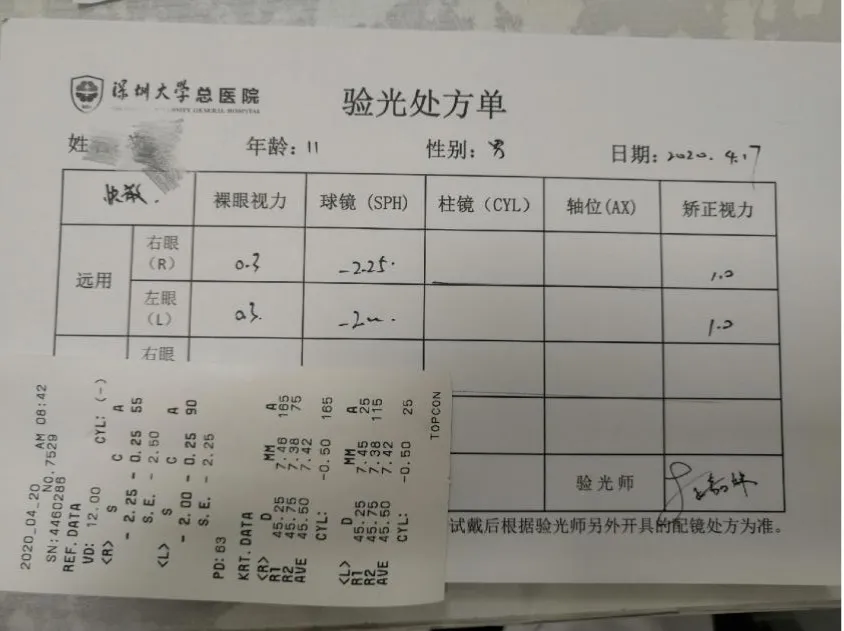 深圳大学总医院
验光处方单
姓 年龄：11 性别：男 日期：2020.4.17
裸眼视力 球镜 (SPH) 柱镜 (CYL) 轴位(AX) 矫正视力
远用 右眼 (R) 0.3 -2.25 1.0
左眼 (L) 0.3 -2 1.0
右眼
验光师
试戴后根据验光师另外开具的配镜处方为准。
2020_04_20 AM 08:42
SN:4460288 NO.7529
REF.DATA
VD: 12.00 CYL: (-)
<R> S C A
- 2.25 - 0.25 55
S.E. - 2.50
<L> S C A
- 2.00 - 0.25 90
S.E. - 2.25
PD: 63
KRT.DATA
<R> D MM A
R1 45.25 7.48 165
R2 45.75 7.38 75
AVE 45.50 7.42
CYL: -0.50 165
<L> D MM A
R1 45.25 7.45 25
R2 45.75 7.38 115
AVE 45.50 7.42
CYL: -0.50 25
TOPCON